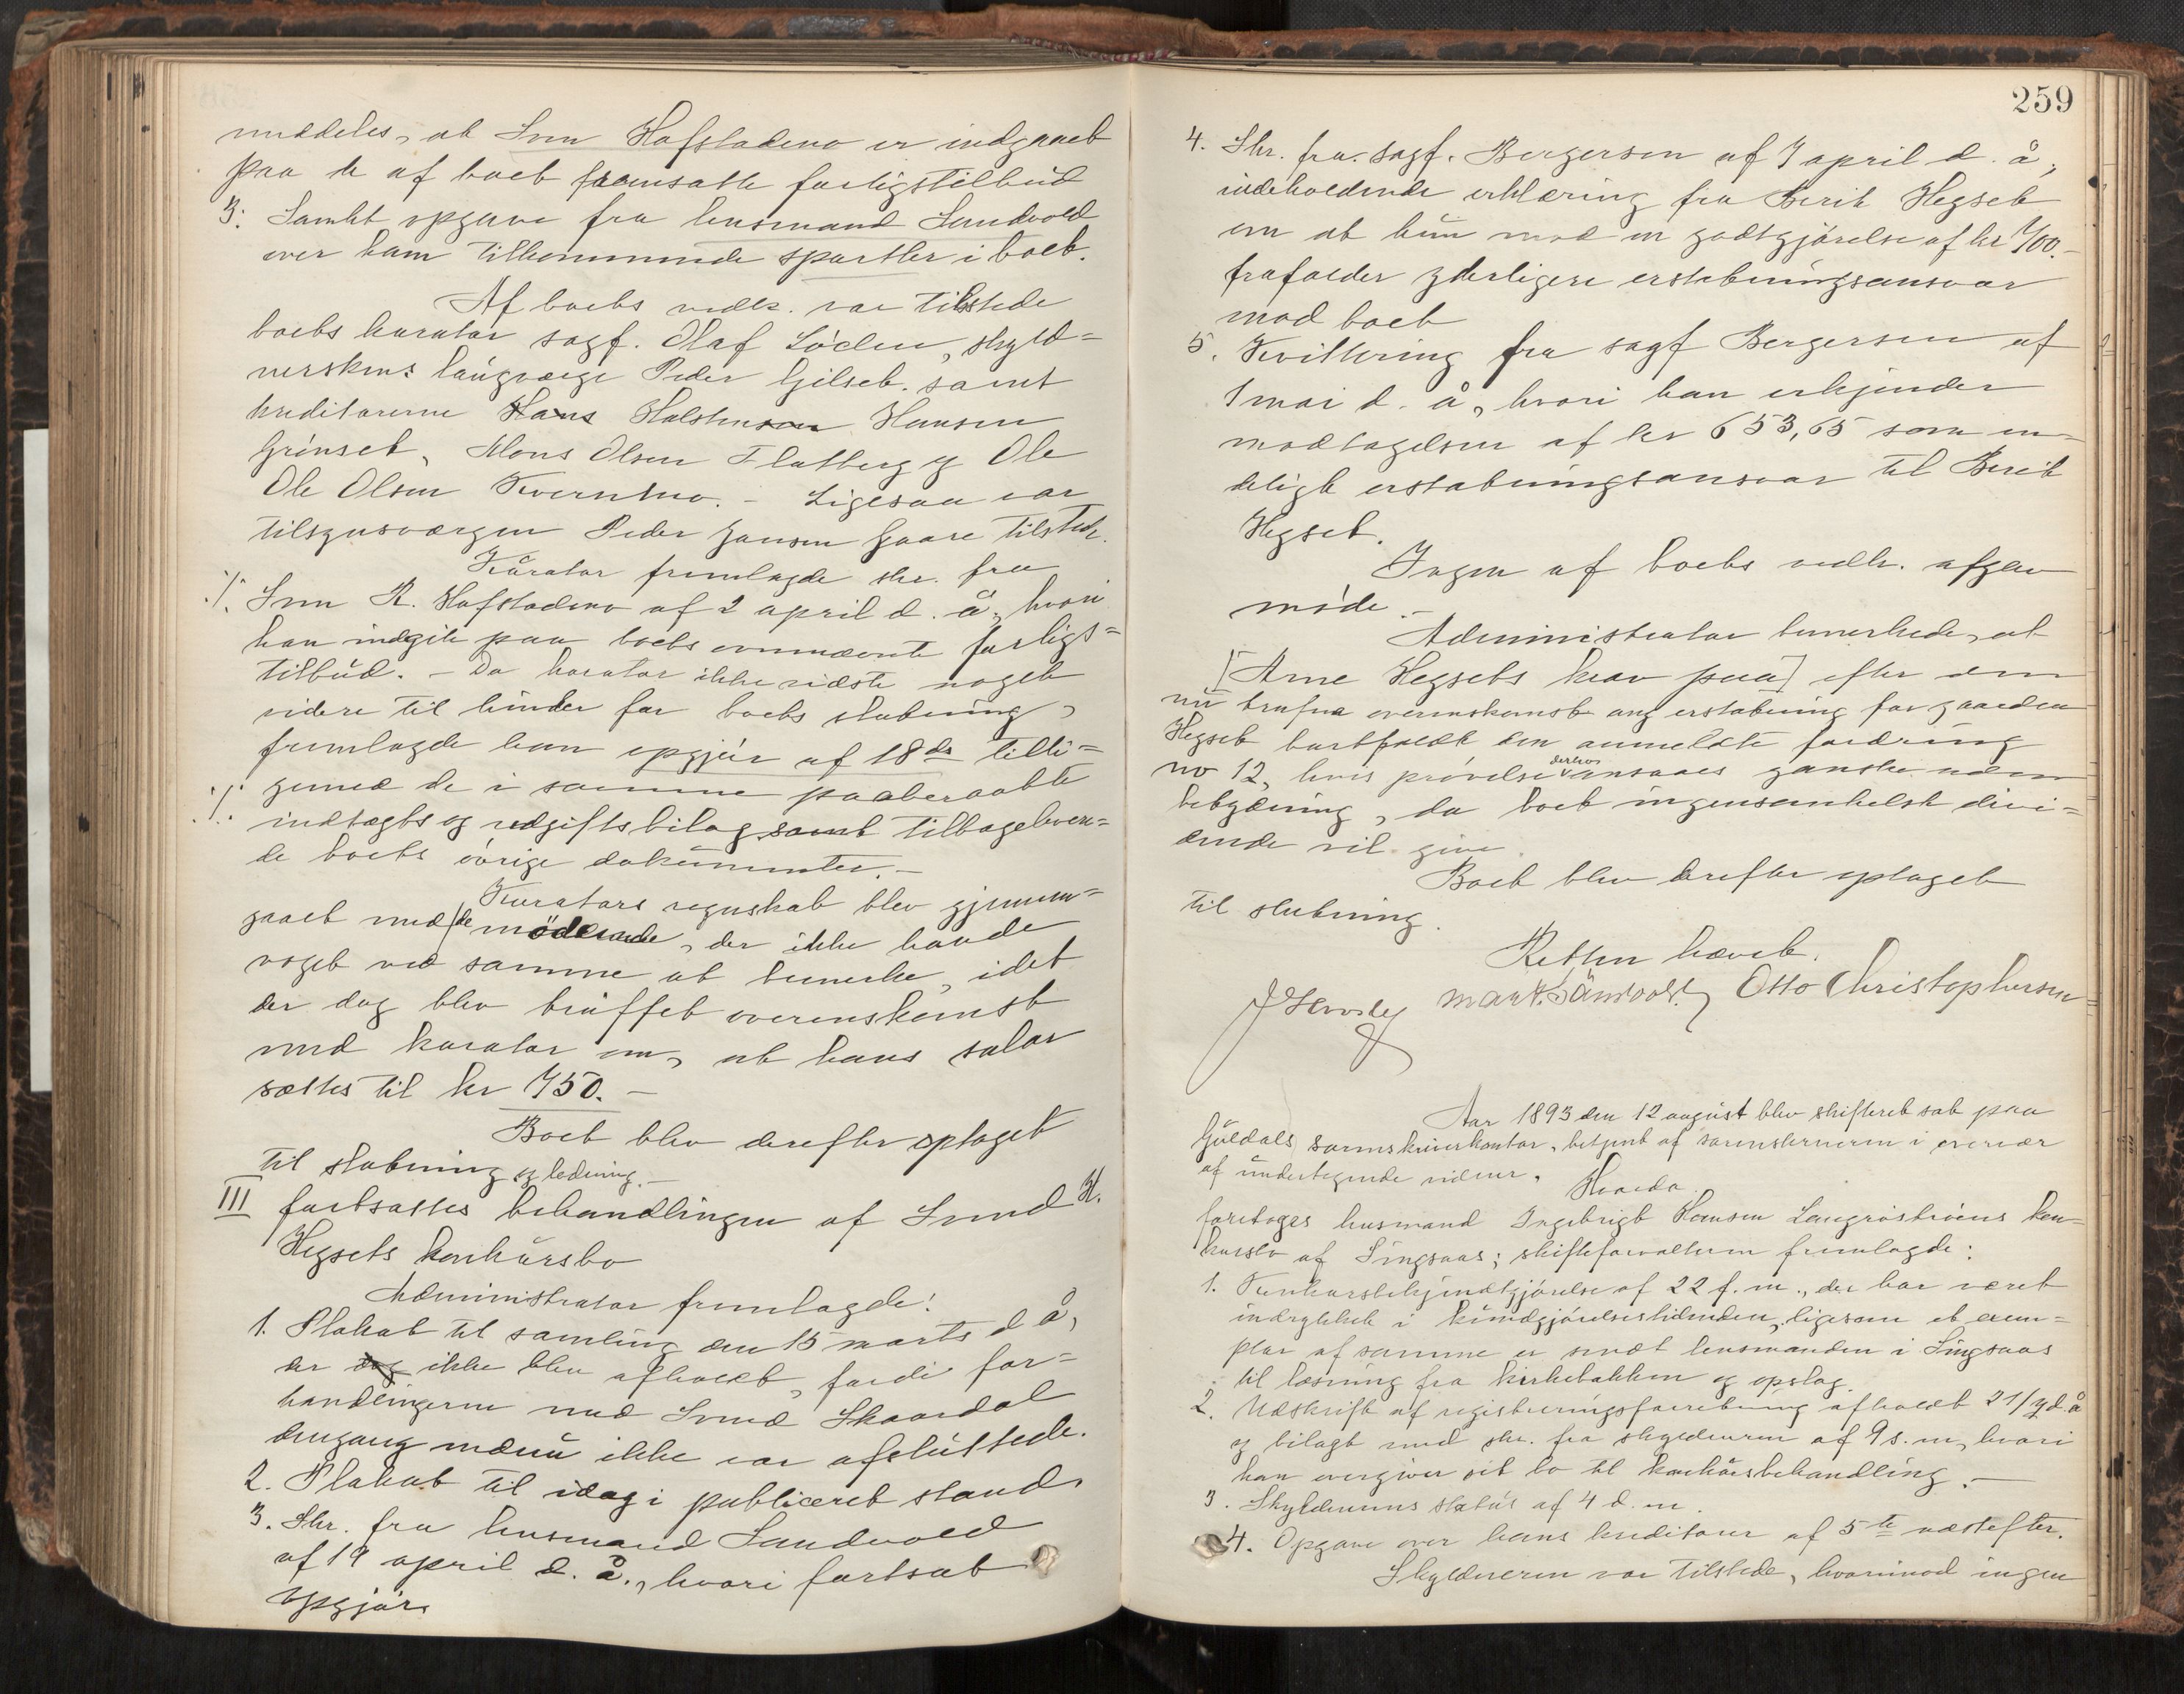 meddeles, at Svend Hofstadmo er indgaaet
paa de af boet fremsatte forligstilbud
3. Samlet opgave fra lensmand Sandvold
over ham tilkommende sportler i boet.
Af boets vedk. var tilstede
boets kurator sagf. Olaf Löchen, skyld=
nerskens laugværge Peder Gilset. samt
kreditorerne Hans Halstensen Hansen
Grinset, Mons Olsen Flatberg og Ole
Ole Olsen Kvernmo. – Ligesaa var
tilsynsværgen Peder Jansen Gaare tilstede.
Kurator fremlagde skr. fra
./. Svend R. Hofstadmo af 2 april d. å., hvori
han indgik paa boets ovennævnte forligs=
tilbud. – Da kurator ikke vidste noget
videre til hinder for boets slutning,
fremlagde han opgjör af 18de tilli=
gemed de i samme paaberaabte
./. indtægts og udgiftsbilag samt tilbageleve=
de boets övrige dokumenter. –
Kurators regnskab blev gjennem=
gaaet med de mödende, der ikke havde
noget ved samme at bemerke, idet
der dog blev truffet overenskomst
med kurator om, at hans salær
sættes til kr 750. –
Boet blev derefter optaget
til slutning og ledning. –
III fortsattes behandlingen af Svend H.
Hegsets konkursbo
Administrator fremlagde:
1. Plakat til samling den 15 marts d å,
der dog ikke blev afholdt, fordi for=
handlingerne med Svend Skaardal
dengang endnu ikke var afsluttede.
2. Plakat til idag i publiceret stand.
3. Skr. fra lensmand Sandvold
af 19 april d. å., hvori fortsat
opgjör.
259
4. Skr. fra sagf. Bergersen af 7 april d. å.,
indeholdende erklæring fra Berit Hegset
om at hun mod en godtgjörelse af kr 700. –
frafalder yderligere erstatningsansvar
mod boet
5. Kvittering fra sagf Bergersen af
1 mai d. å, hvori han erkjender
modtagelsen af kr 653,65 som en=
deligt erstatningsansvar til Berit
Hegset.
Ingen af boets vedk. afgav
möde. –
Administrator bemerkede, at
[Arne Hegsets krav paa] efter den
nu trufne overenskomst ang erstatning for gaarden
Hegset bortfaldt den anmeldte fordring
no 12, hvis prövelse derhos ansaaes ganske uden
betydning, da boet ingensomhelst divi=
dende vil give.
Boet blev derefter optaget
til slutning.
Retten hævet.
J Hvosley Mart. Sandvold. Otto Christophersen
Aar 1893 den 12 august blev skifteret sat paa
Guldals sorenskriverkontor, betjent af sorenskriveren i overvær
af undertegnede vidner. Hvorda
foretoges husmand Ingebrigt Hansen Langröstöens kon=
kursbo af Singsaas; skifteforvalteren fremlagde:
1. Konkursbekjendtgjörelse af 22 f. m., der har været
indrykket i kundgjörelsestidenden, ligesom et exem=
plar af samme er sendt lensmanden i Singsaas
til læsning fra kirkebakken og opslag.
2. Udskrift af registreringsforretning afholdt 21/7 d. å
og bilagt med skr. fra skyldneren af 9 s. m, hvori
han overgiver sit bo til konkursbehandling. –
3. Skyldnerens status af 4 d. m.
4. Opgave over hans kreditorer af 5te næstefter.
Skyldneren var tilstede, hvorimod ingen